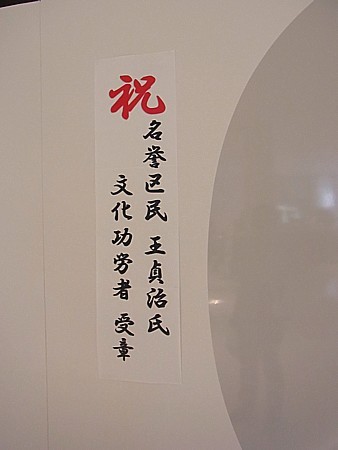 祝
名誉区民 王貞治氏
文化功労者 受章